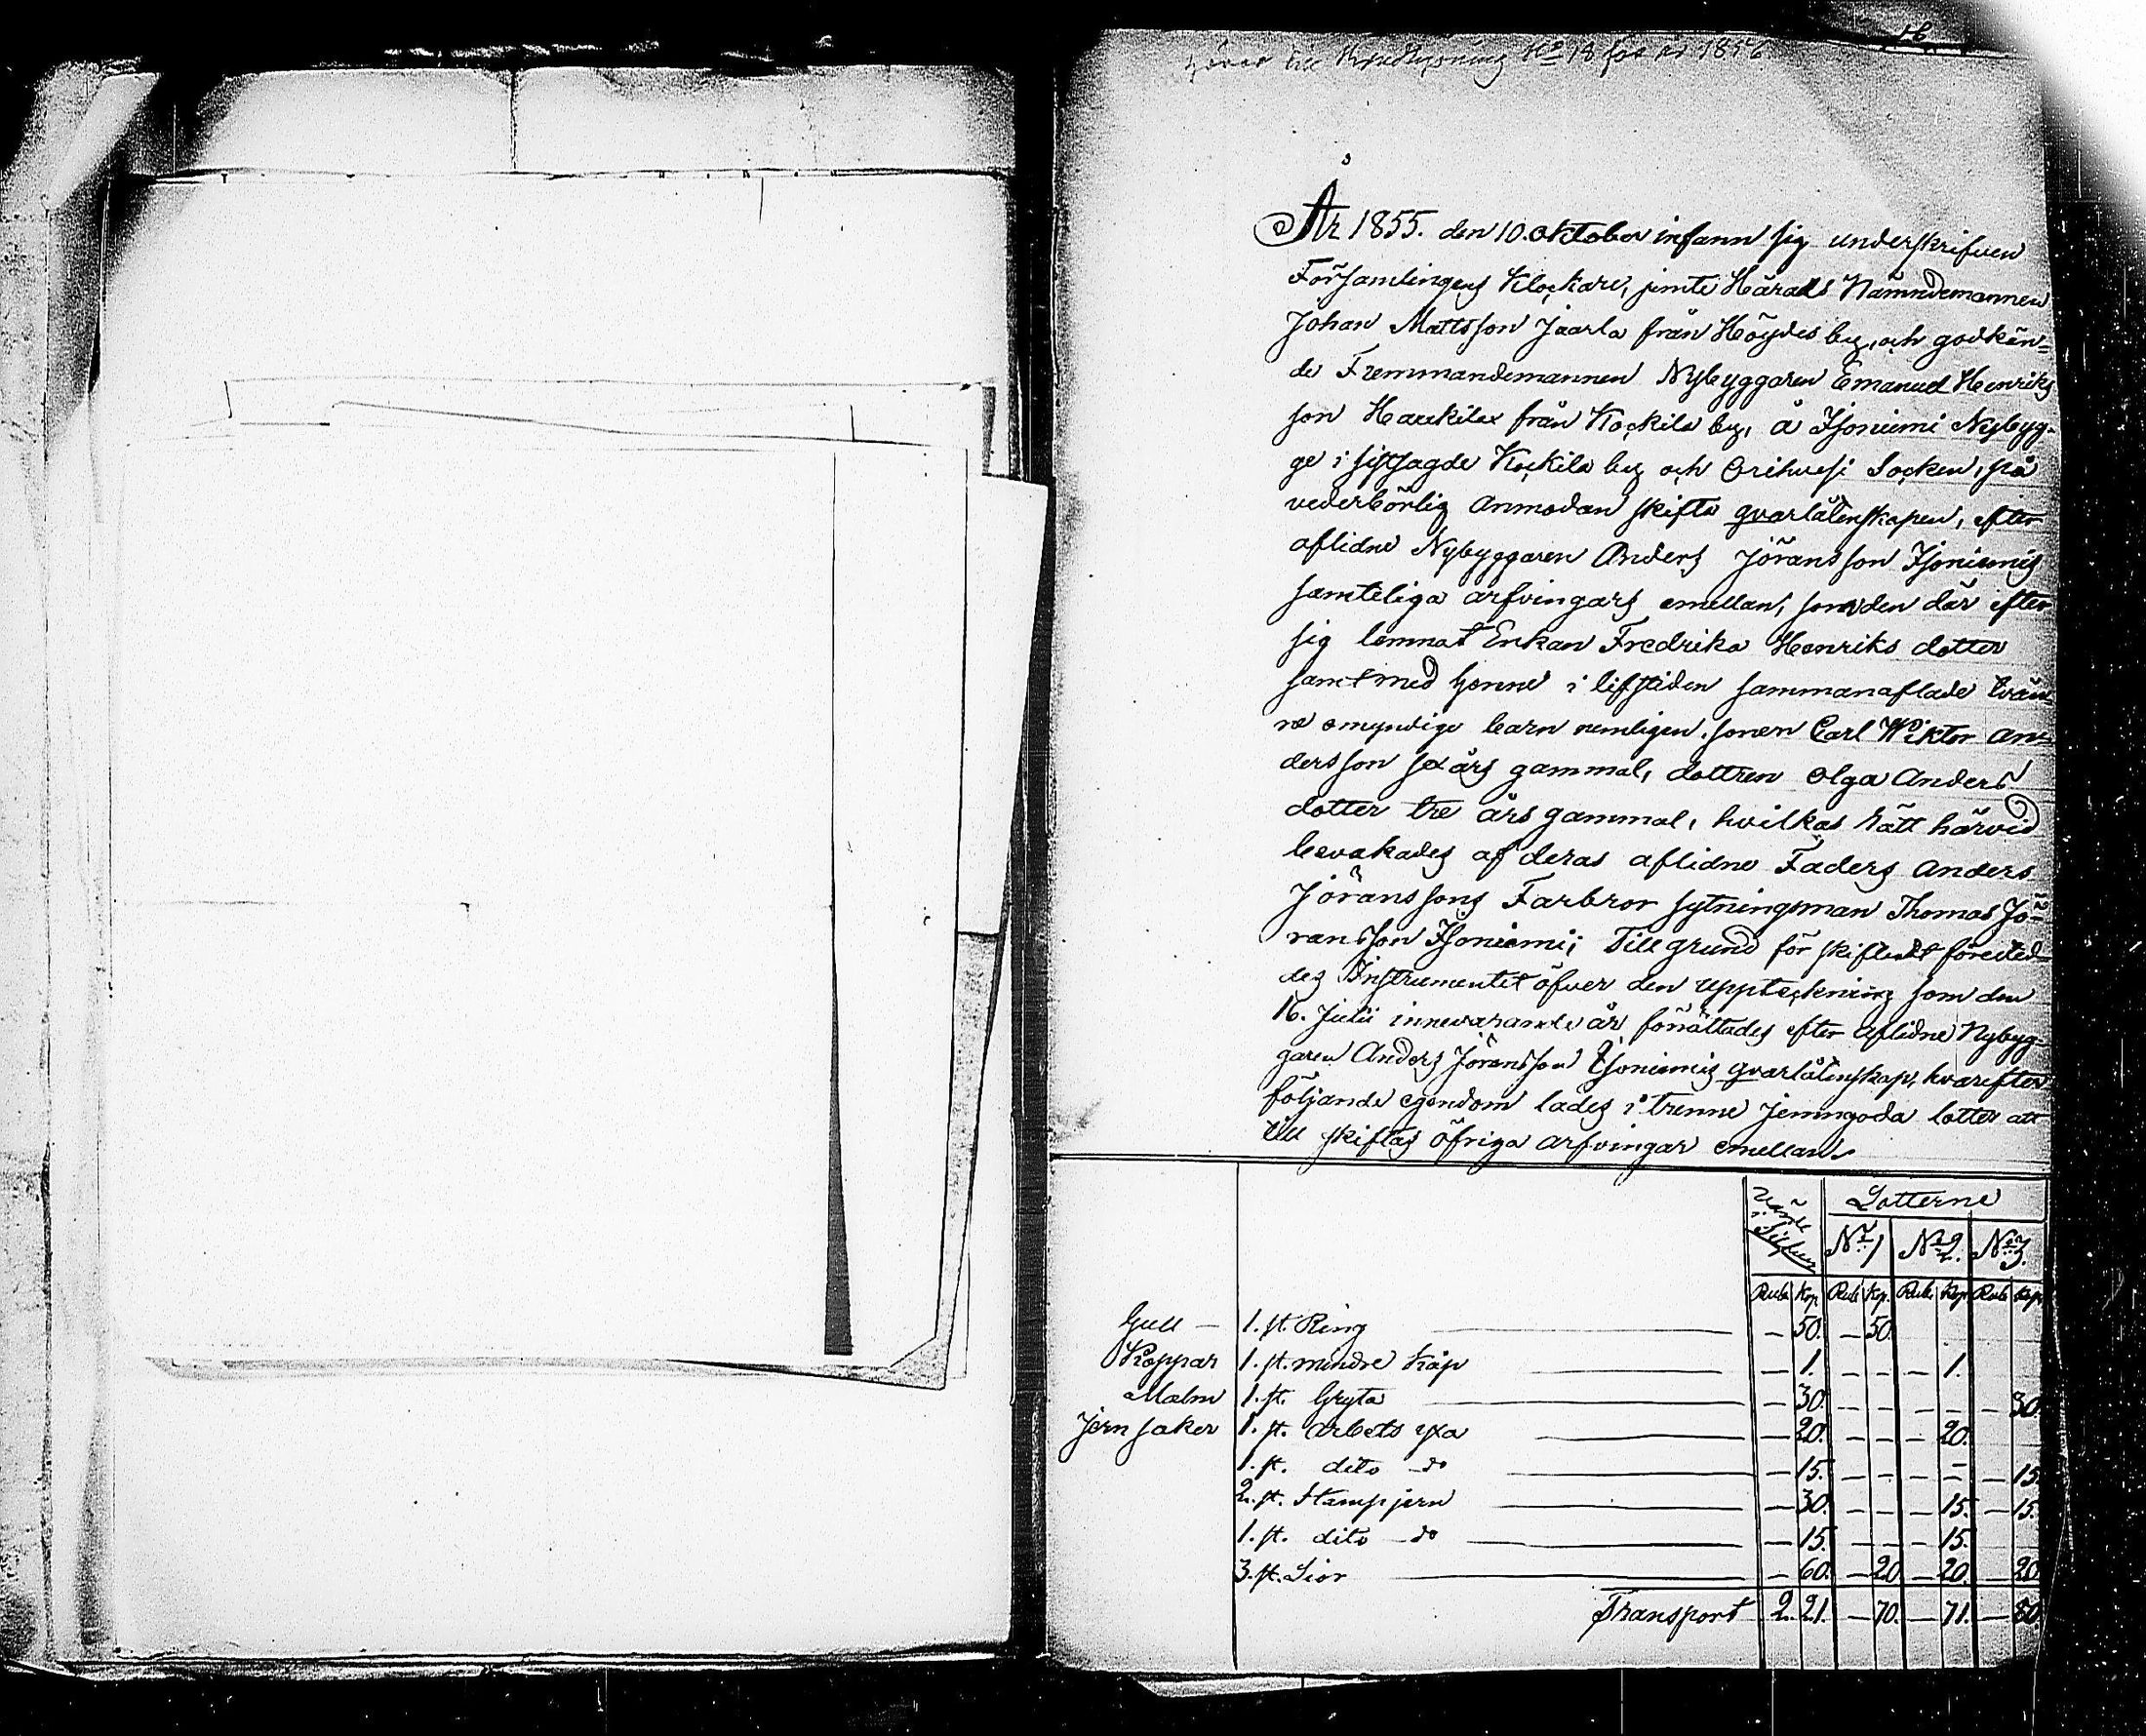 16
Hörer till Kundlysning No 18 för år 1856
År 1855. den 10. Oktober infann sig underskrifven
Församlingens Klockare, jemte Härads Nämndemannen
Johan Mattsson Jaarla från Höydes by, och godkän=
de Fremmandemannen Nybyggaren Emanuel Henriks
son Haukilax från Kockila by, å Isoniemi Nybyg-
ge i sistsagde Kockila by och Orihvesi Socken, på
vederbörlig anmodan skifta qvarlåtenskapen, efter
aflidne Nybyggaren Anders Jöransson Isoniemis
samteliga arfvingars emellan, som den där efter
sig lemnat Enkan Fredrika Henriks dotter
samt med henne i lifstiden sammanaflade tvän
ne omyndige barn nemligen. sonen Carl Wiktor An-
dersson sex års gammal, dottren Olga Anders
dotter tre års gammal, hvilkas rätt härvid
bevakades af deras aflidne Faders Anders
Jöranssons Farbror sytningsman Thomas Jö-
ransson Isoniemi; Till grund för skiftet företed-
des Instrumentet öfver den uppteckning som den
16. Julii innevarande år förrättades efter aflidne Nybyg-
garen Anders Jöransson Isoniemis qvarlåtenskap, hvarefter
följande egendom lades i trenne jemngoda lotter att
till skiftas öfriga arfvingar emellan.
Värde i Silfver Lotterne
No 1 No 2. No 3.
Rub Kop Rub Kop. Rub Kop Rub Kop
Gull — 1. st. Ring — 50. — 50.
Koppar 1. st. mindre Kåp — 1. — — — 1.
Malm 1. st. Gryta — 30. — — — — — 30.
Jern saker 1. st. arbets yxa — 20. — — — 20.
1. st. dito do — 15. — — — — — 15.
2. st. Stampjern — 30. — — — 15. — 15.
1. st. dito do — 15. — — — 15.
3. st. Lior — 60. — 20. — 20. — 20.
Transport 2. 21. — 70. — 71. — 80.